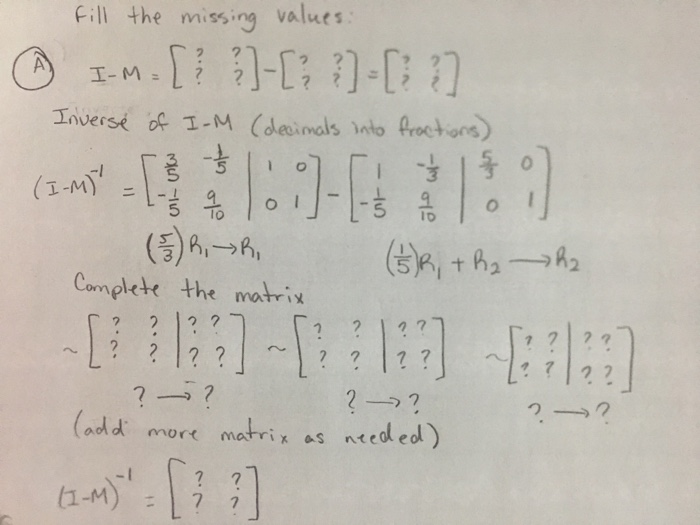 Fill the missing values:
(A) I-M = [? ? ; ? ?] - [? ? ; ? ?] = [? ? ; ? ?]
Inverse of I-M (decimals into fractions)
(I-M)⁻¹ = [3/5 -1/5 | 1 0 ; -1/5 9/10 | 0 1] - [1 -1/3 | 5/3 0 ; -1/5 9/10 | 0 1]
(5/3) R₁ → R₁ (1/5) R₁ + R₂ → R₂
Complete the matrix
~ [? ? | ? ? ; ? ? | ? ?] ~ [? ? | ? ? ; ? ? | ? ?] ~ [? ? | ? ? ; ? ? | ? ?]
? → ? ? → ? ? → ?
(add more matrix as needed)
(I-M)⁻¹ = [? ? ; ? ?]